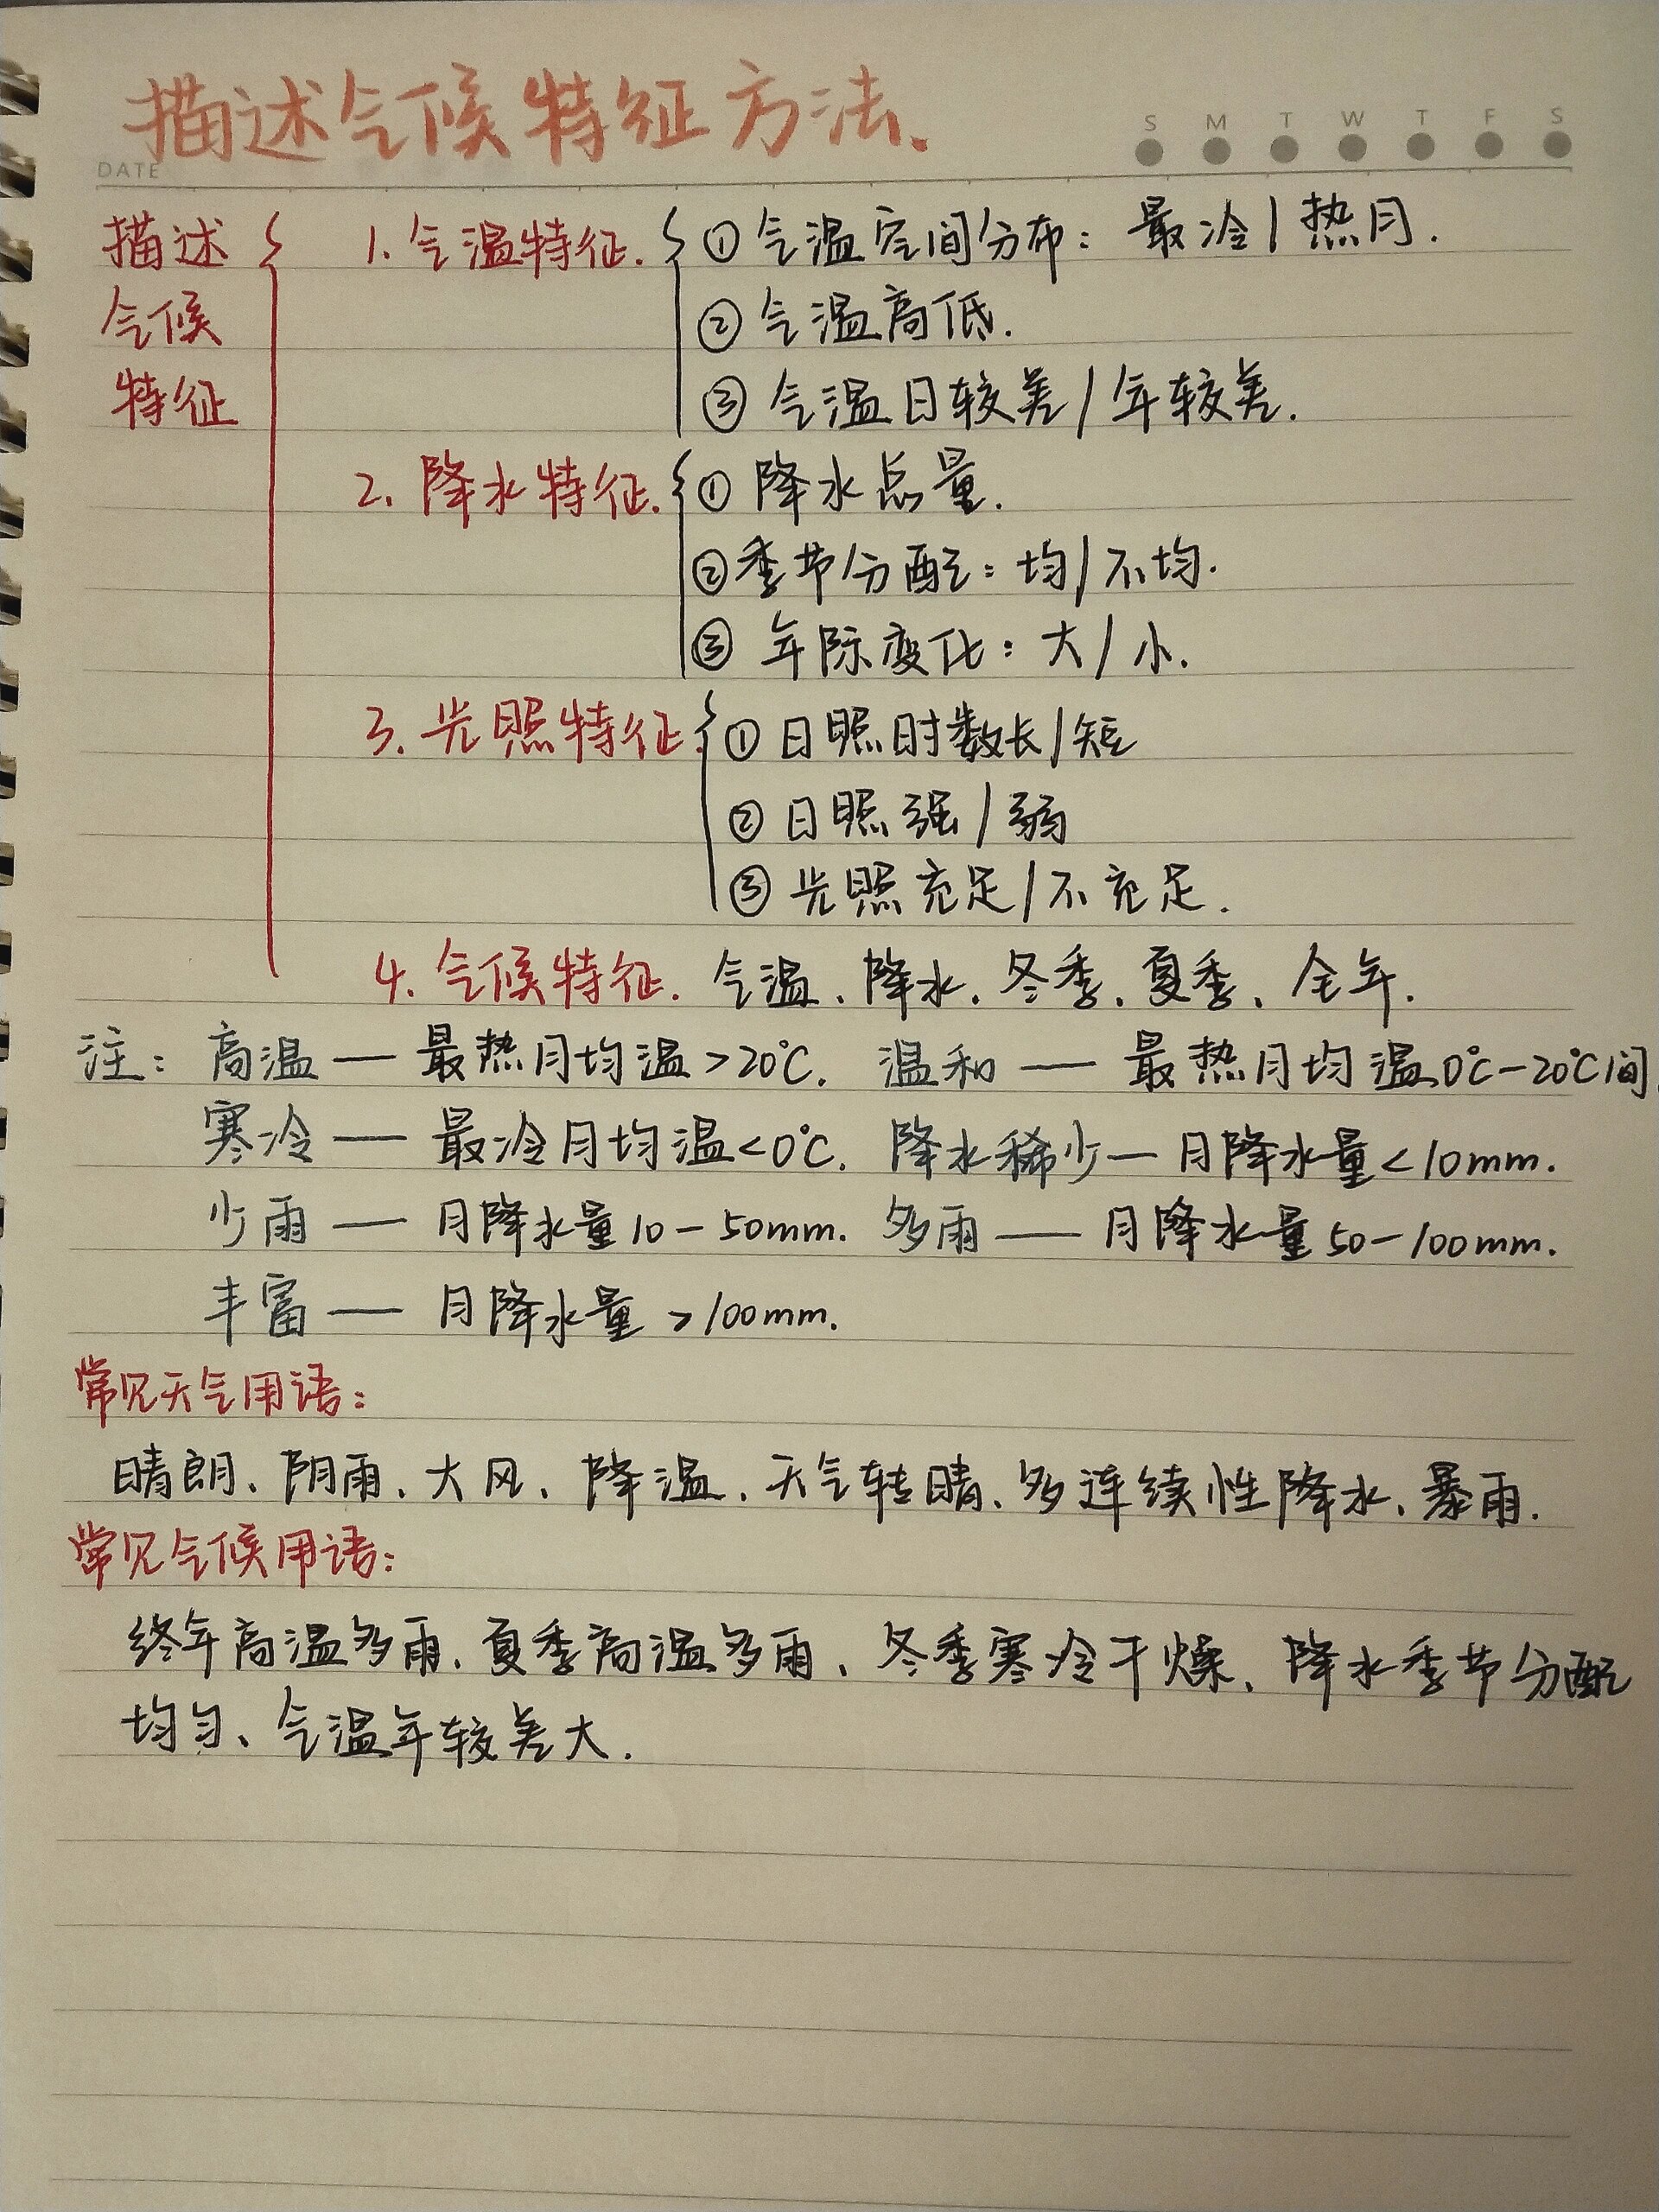 描述气候特征方法、
S M T W T F S
DATE
描述气候特征
1. 气温特征.
① 气温空间分布：最冷/热月.
② 气温高低.
③ 气温日较差/年较差.
2. 降水特征.
① 降水总量.
② 季节分配：均/不均.
③ 年际变化：大/小.
3. 光照特征.
① 日照时数长/短
② 日照强/弱
③ 光照充足/不充足.
4. 气候特征. 气温、降水、冬季、夏季、全年.
注：高温 — 最热月均温>20℃. 温和 — 最热月均温0℃-20℃间.
寒冷 — 最冷月均温<0℃. 降水稀少 — 月降水量<10mm.
少雨 — 月降水量10-50mm. 多雨 — 月降水量50-100mm.
丰富 — 月降水量>100mm.
常见天气用语：
晴朗、阴雨、大风、降温、天气转晴、多连续性降水、暴雨.
常见气候用语：
终年高温多雨、夏季高温多雨、冬季寒冷干燥、降水季节分配
均匀、气温年较差大.